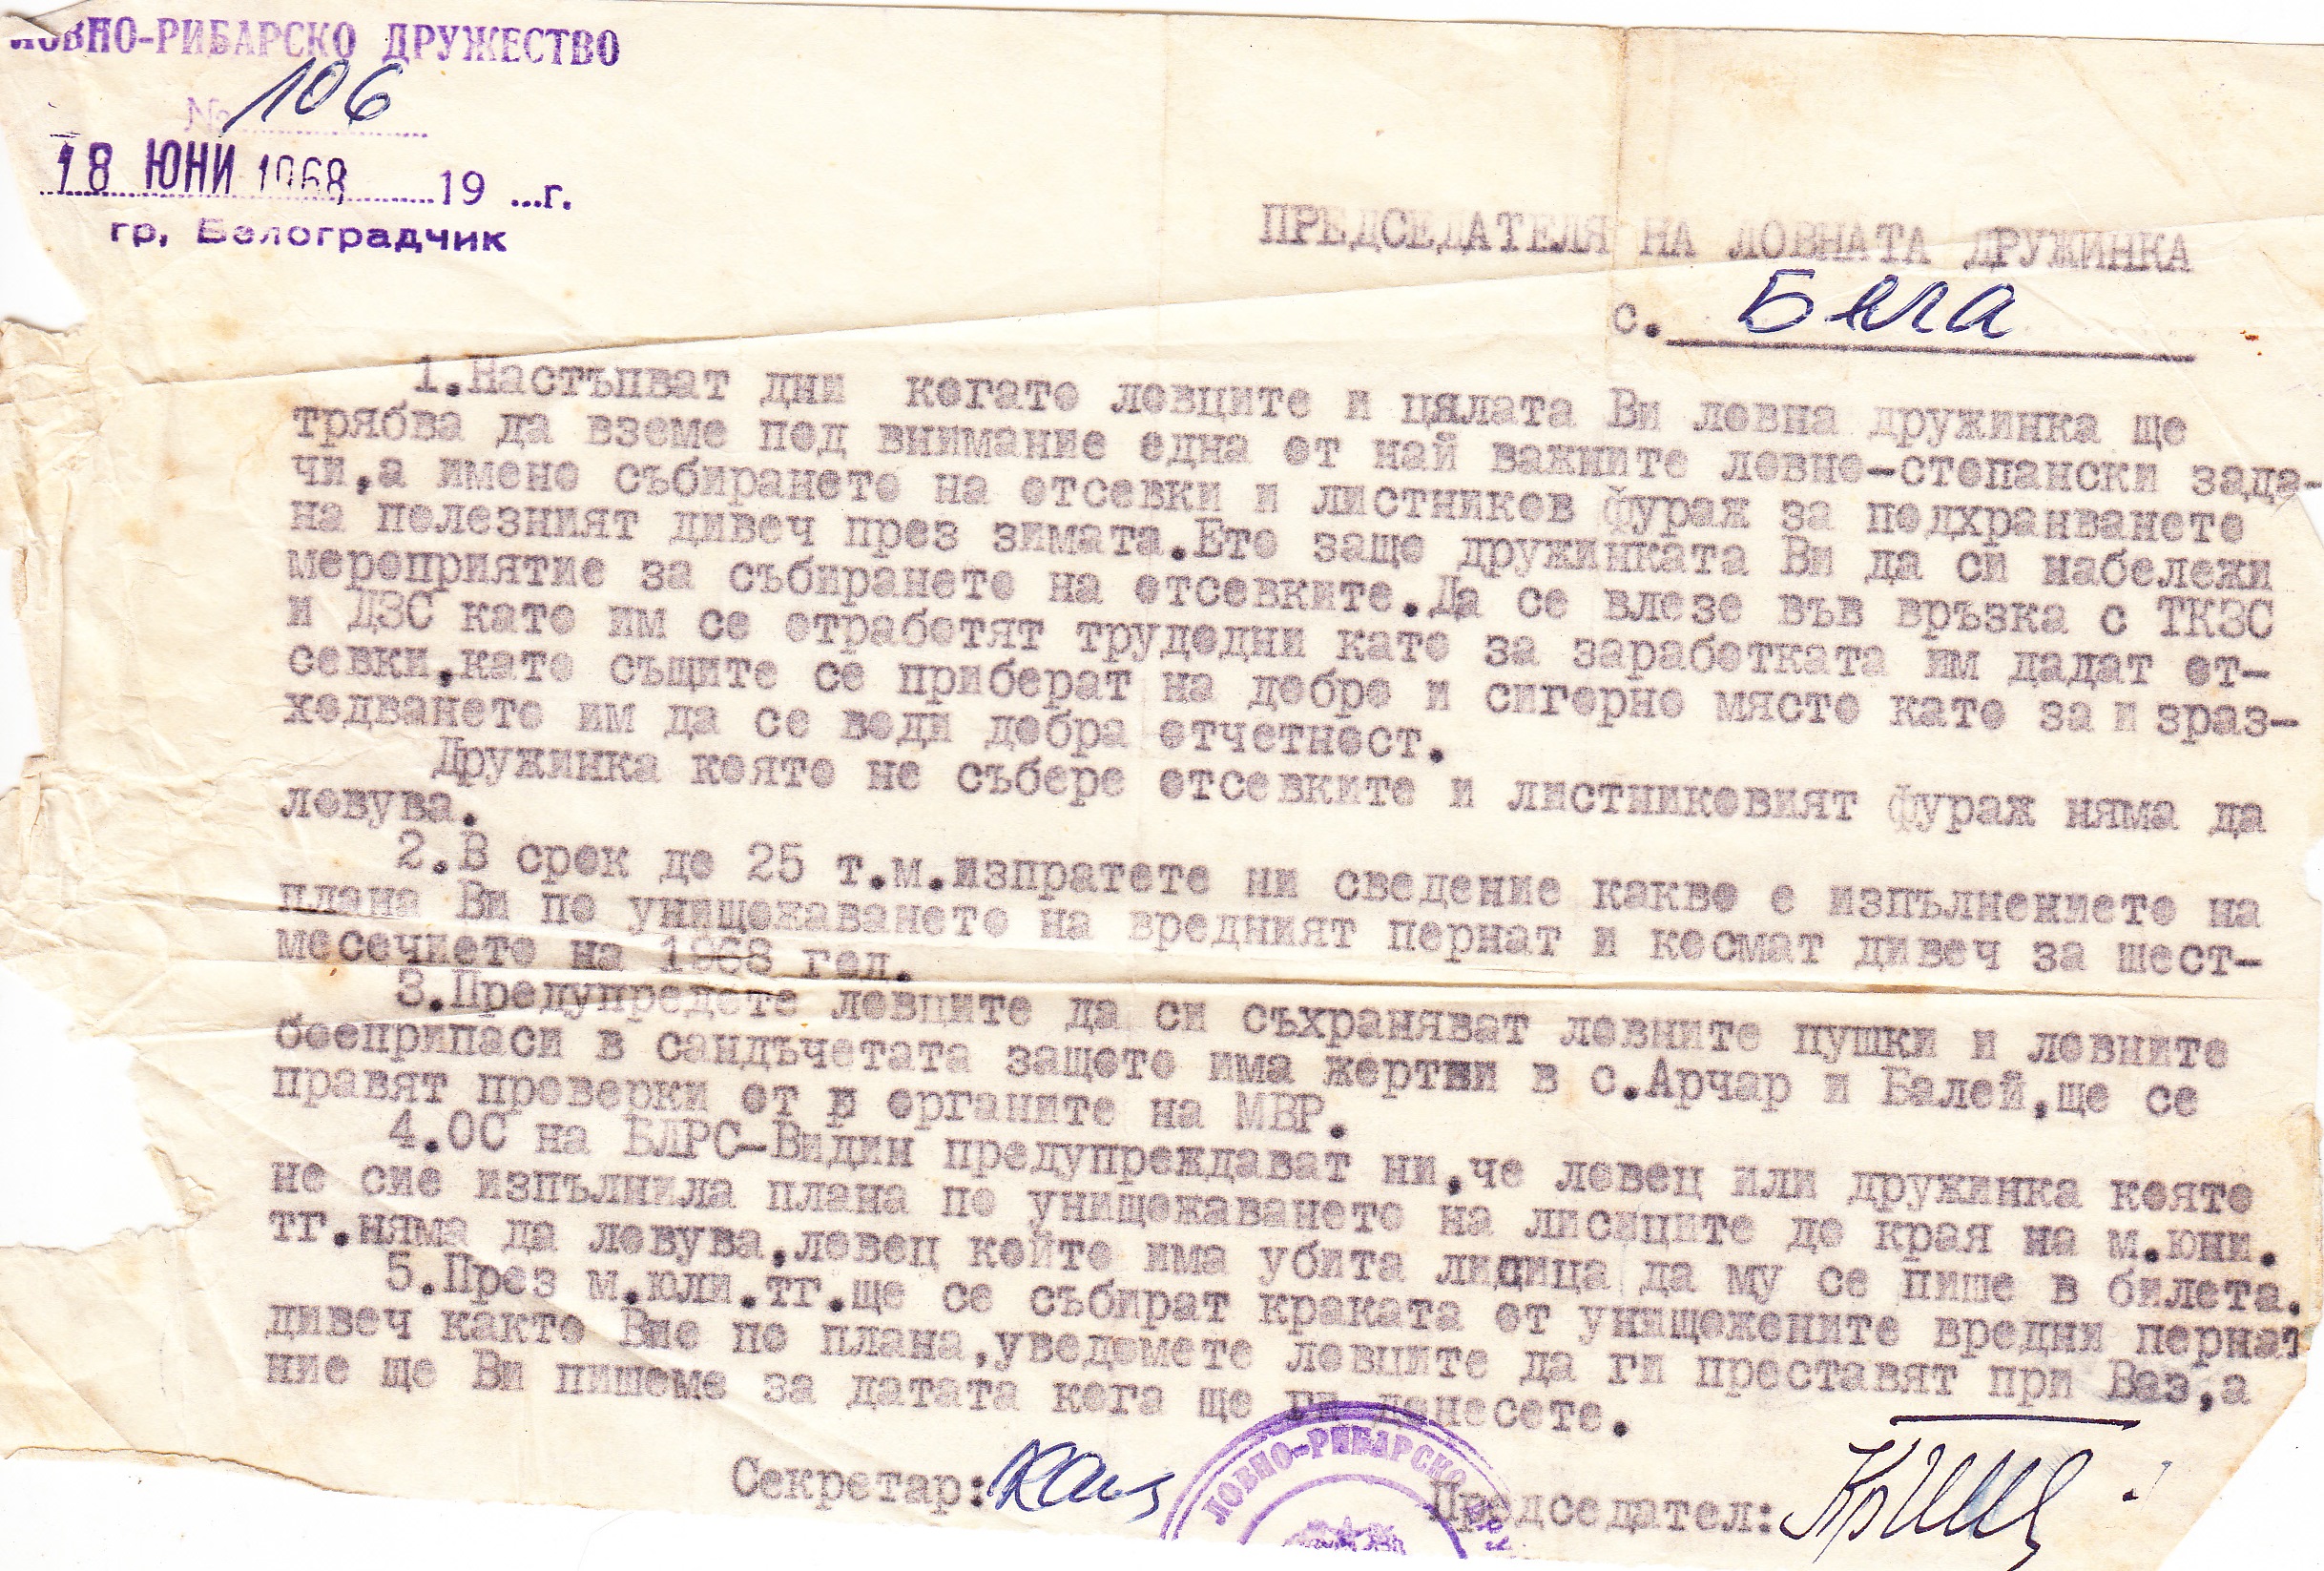 ЛОВНО-РИБАРСКО ДРУЖЕСТВО
№ 106
18 ЮНИ 1968 19 ...г.
гр. Белоградчик
ПРЕДСЕДАТЕЛЯ НА ЛОВНАТА ДРУЖИНКА
с. Бела
1.Настъпват дни когато ловците и цялата Ви ловна дружинка ще
трябва да вземе под внимание една от най важните ловно-стопански зада-
чи,а имено събирането на отсевки и листников фураж за подхранването
на полезният дивеч през зимата.Ето защо дружинката Ви да си набележи
мероприятие за събирането на отсевките.Да се влезе във връзка с ТКЗС
и ДЗС като им се отработят трудодни като за заработката им дадат от-
севки,като същите се приберат на добро и сигорно място като за и зраз-
ходването им да се води добра отчетност.
Дружинка която не събере отсевките и листниковият фураж няма да
ловува.
2.В срок до 25 т.м.изпратете ни сведение какво е изпълнението на
плана Ви по унищожаването на вредният пернат и космат дивеч за шест-
месечието на 1968 год.
3.Предупредете ловците да си съхраняват ловните пушки и ловните
боеприпаси в сандъчетата защото има жертви в с.Арчар и Балей,ще се
правят проверки от в органите на МВР.
4.ОС на БЛРС-Видин предупреждават ни,че ловец или дружинка която
не сие изпълнила плана по унищожаването на лисиците до края на м.юни.
тг.няма да ловува,ловец който има убита лисица да му се пише в билета.
5.През м.юли.тг.ще се събират краката от унищожените вредни пернат
дивеч както Вие по плана,уведомете ловците да ги преставят при Ваз,а
ние ще Ви пишеме за датата кога ще ги донесете.
Секретар:
Председател:
ЛОВНО-РИБАРСКО